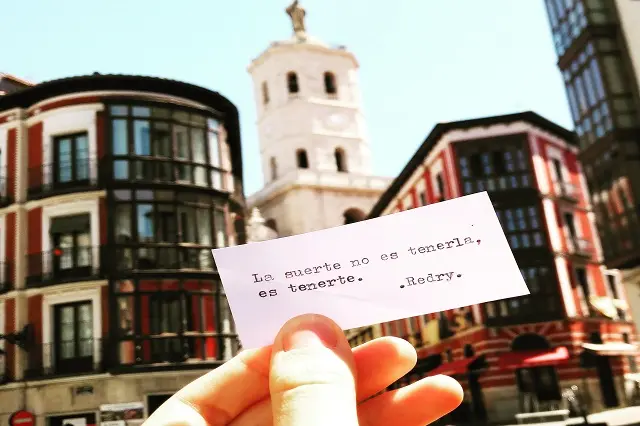 La suerte no es tenerla,
es tenerte. .Redry.